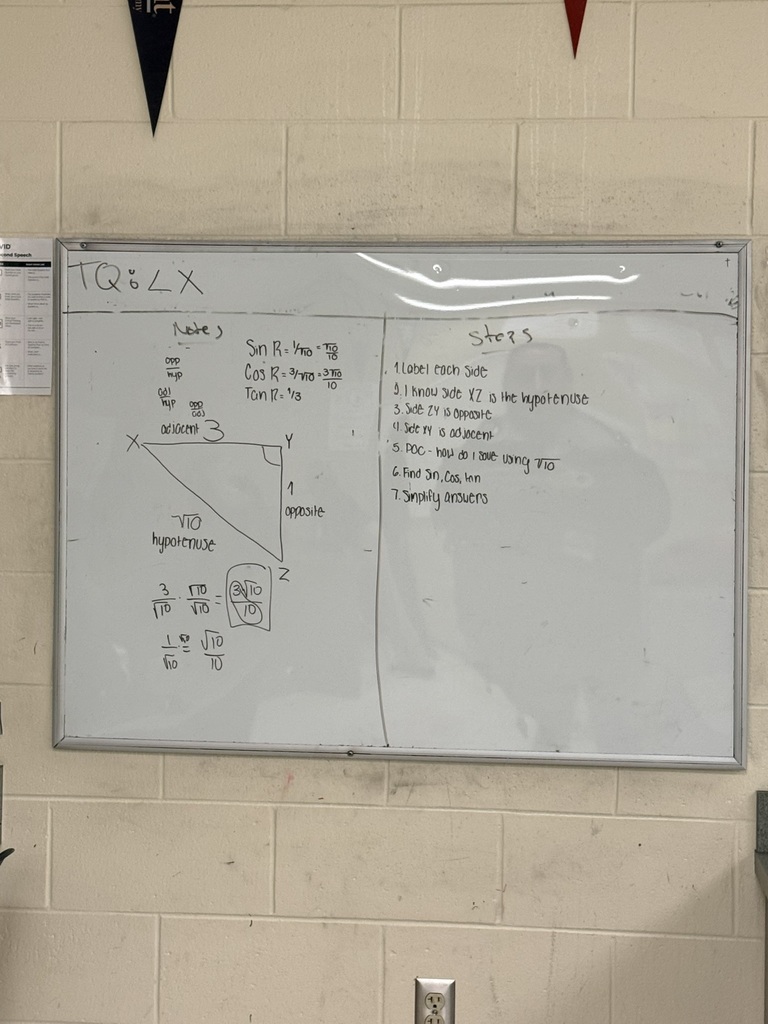 TQ: ∠X
Notes
opp
hyp
adj
hyp
opp
adj
Sin R = 1/√10 = √10/10
Cos R = 3/√10 = 3√10/10
Tan R = 1/3
adjacent 3
X
Y
1
opposite
√10
hypotenuse
Z
3/√10 · √10/√10 = 3√10/10
1/√10 = √10/10
Steps
1. Label each side
2. I know side XZ is the hypotenuse
3. Side ZY is opposite
4. Side XY is adjacent
5. POC - how do I solve using √10
6. Find Sin, Cos, tan
7. Simplify answers